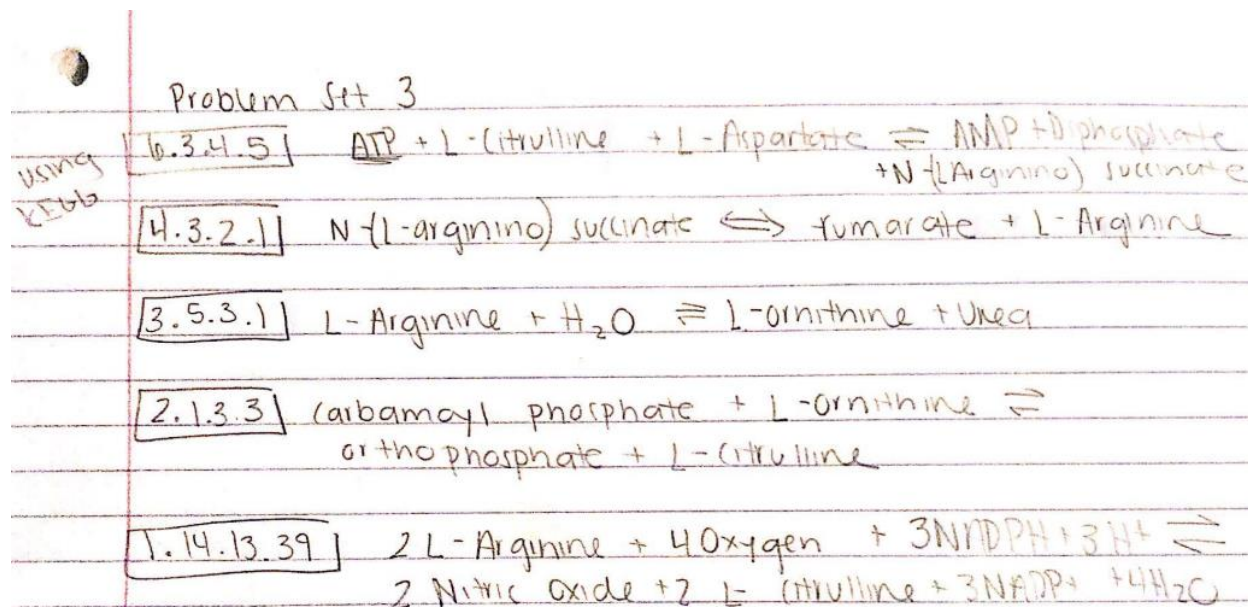 Problem Set 3
using KEGG
6.3.4.5 ATP + L-Citrulline + L-Aspartate ⇌ AMP + Diphosphate
+N-(LArginino) succinate
4.3.2.1 N-(L-arginino) succinate ⇔ fumarate + L-Arginine
3.5.3.1 L-Arginine + H₂O ⇌ L-ornithine + Urea
2.1.3.3 carbamoyl phosphate + L-ornithine ⇌
orthophosphate + L-citrulline
1.14.13.39 2 L-Arginine + 4 Oxygen + 3NADPH + 3H+ ⇌
2 Nitric Oxide + 2 L-citrulline + 3NADP+ + 4H₂O